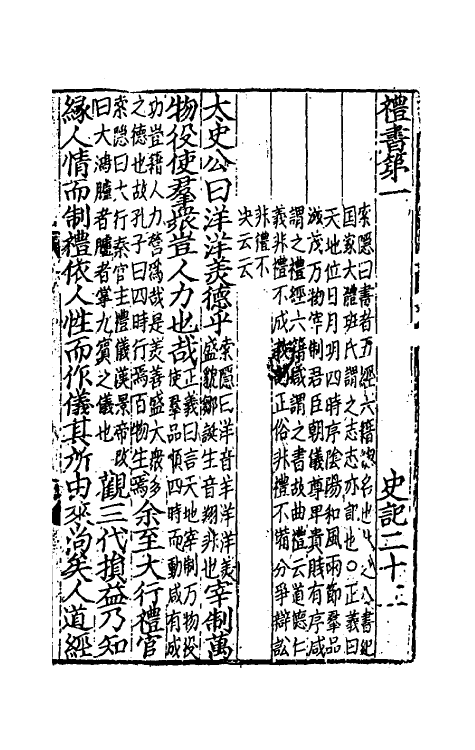 禮書第一　史記二十
索隱曰書者五經六籍總名也此之八書紀
国家大體班氏謂之志志亦記也○正義曰
天地位日月明四時序陰陽和風雨節羣品
滋茂万物宰制君臣朝儀尊卑貴賤有序咸
謂之禮經六籍咸謂之書故曲禮云道德仁
義非禮不成訓正俗非禮不備分爭辯訟
非禮不
决云云
太史公曰洋洋美德乎
索隱曰洋音羊洋洋美
盛貌鄒誕生音翔非也
宰制萬
物役使羣衆豈人力也哉
正義曰言天地宰制万物役
使羣品順四時而動咸有成
功豈籍人力營爲哉是美善盛大衆多
之德也故孔子曰四時行焉百物生焉
余至大行禮官
索隱曰大行秦官主禮儀漢景帝改
曰大鴻臚臚者掌九賓之儀也
觀三代損益乃知
緣人情而制禮依人性而作儀其所由來尚矣人道經